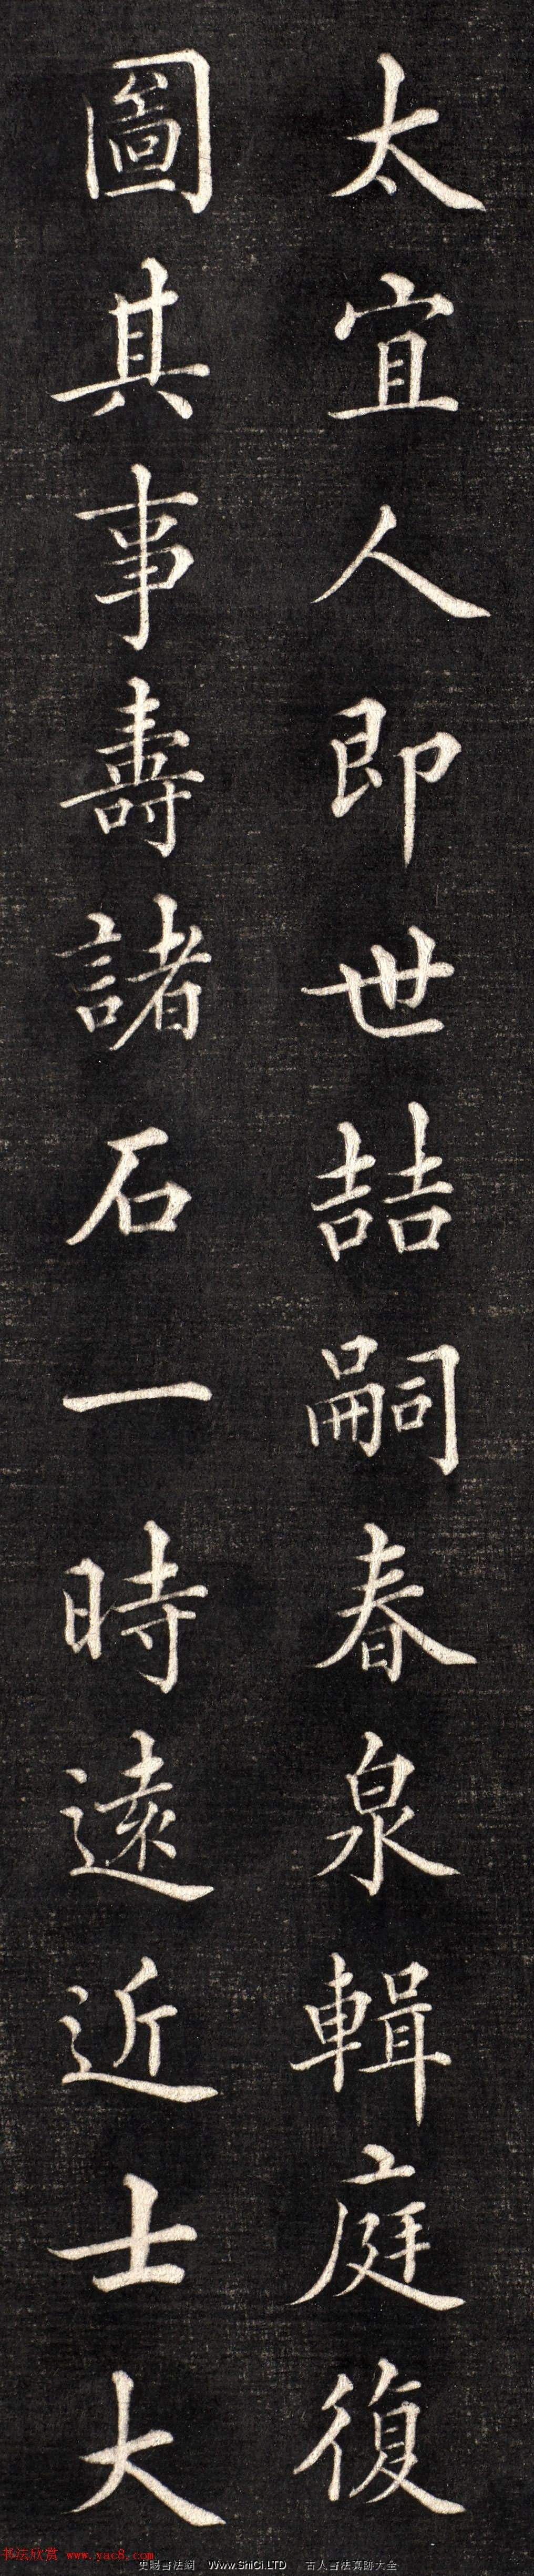 太宜人即世喆嗣春泉輯庭復
圖其事壽諸石一時遠近士大
书法欣赏 www.yac8.com
史賜書法網 Www.ShiCi.LTD 古人書法真跡大全